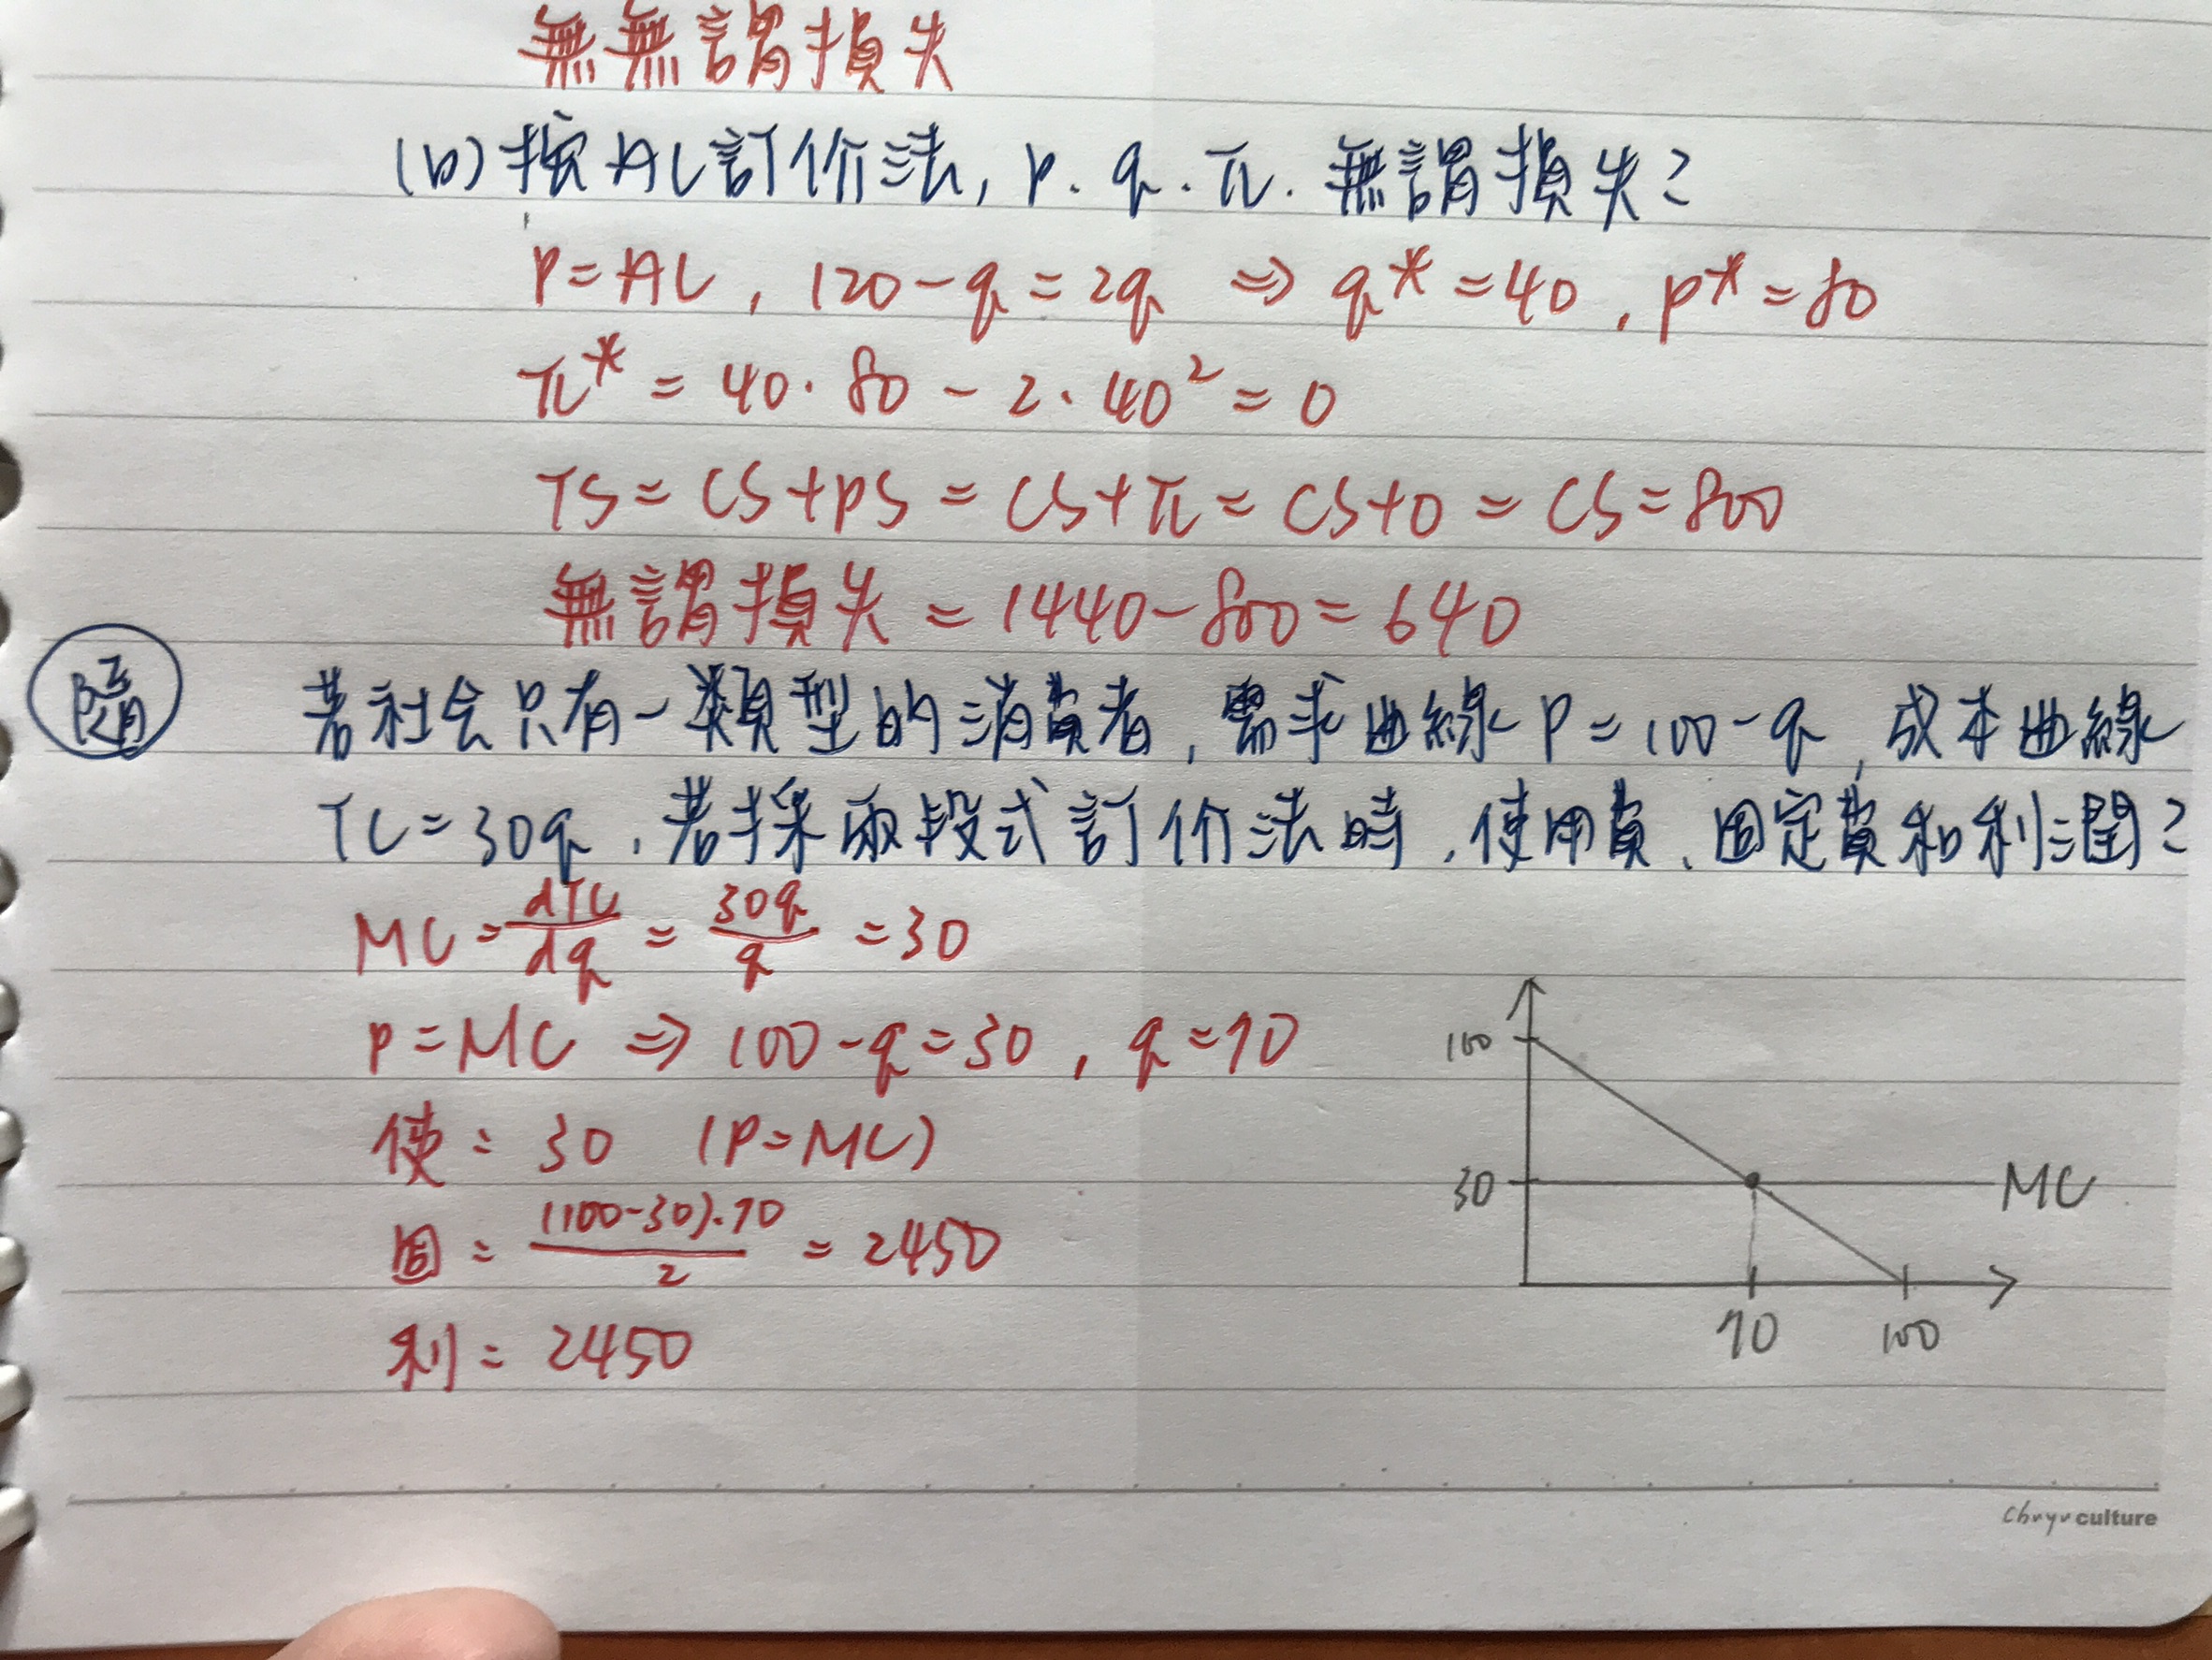 無無謂損失
(b) 按AC訂价法, p. q. π. 無謂損失?
P=AC, 120-q=2q ⇒ q*=40, p*=80
π*=40·80-2·40²=0
TS=CS+PS=CS+π=CS+0=CS=800
無謂損失=1440-800=640
隨 若社会只有一類型的消費者, 需求曲線P=100-q, 成本曲線
TC=30q, 若採兩段式訂价法時, 使用費、固定費和利潤?
MC=dTC/dq=30q/q=30
P=MC ⇒ 100-q=30, q=70
使=30 (P=MC)
固=(100-30)·70/2=2450
利=2450
100
30
MC
70 100
Chuyu culture